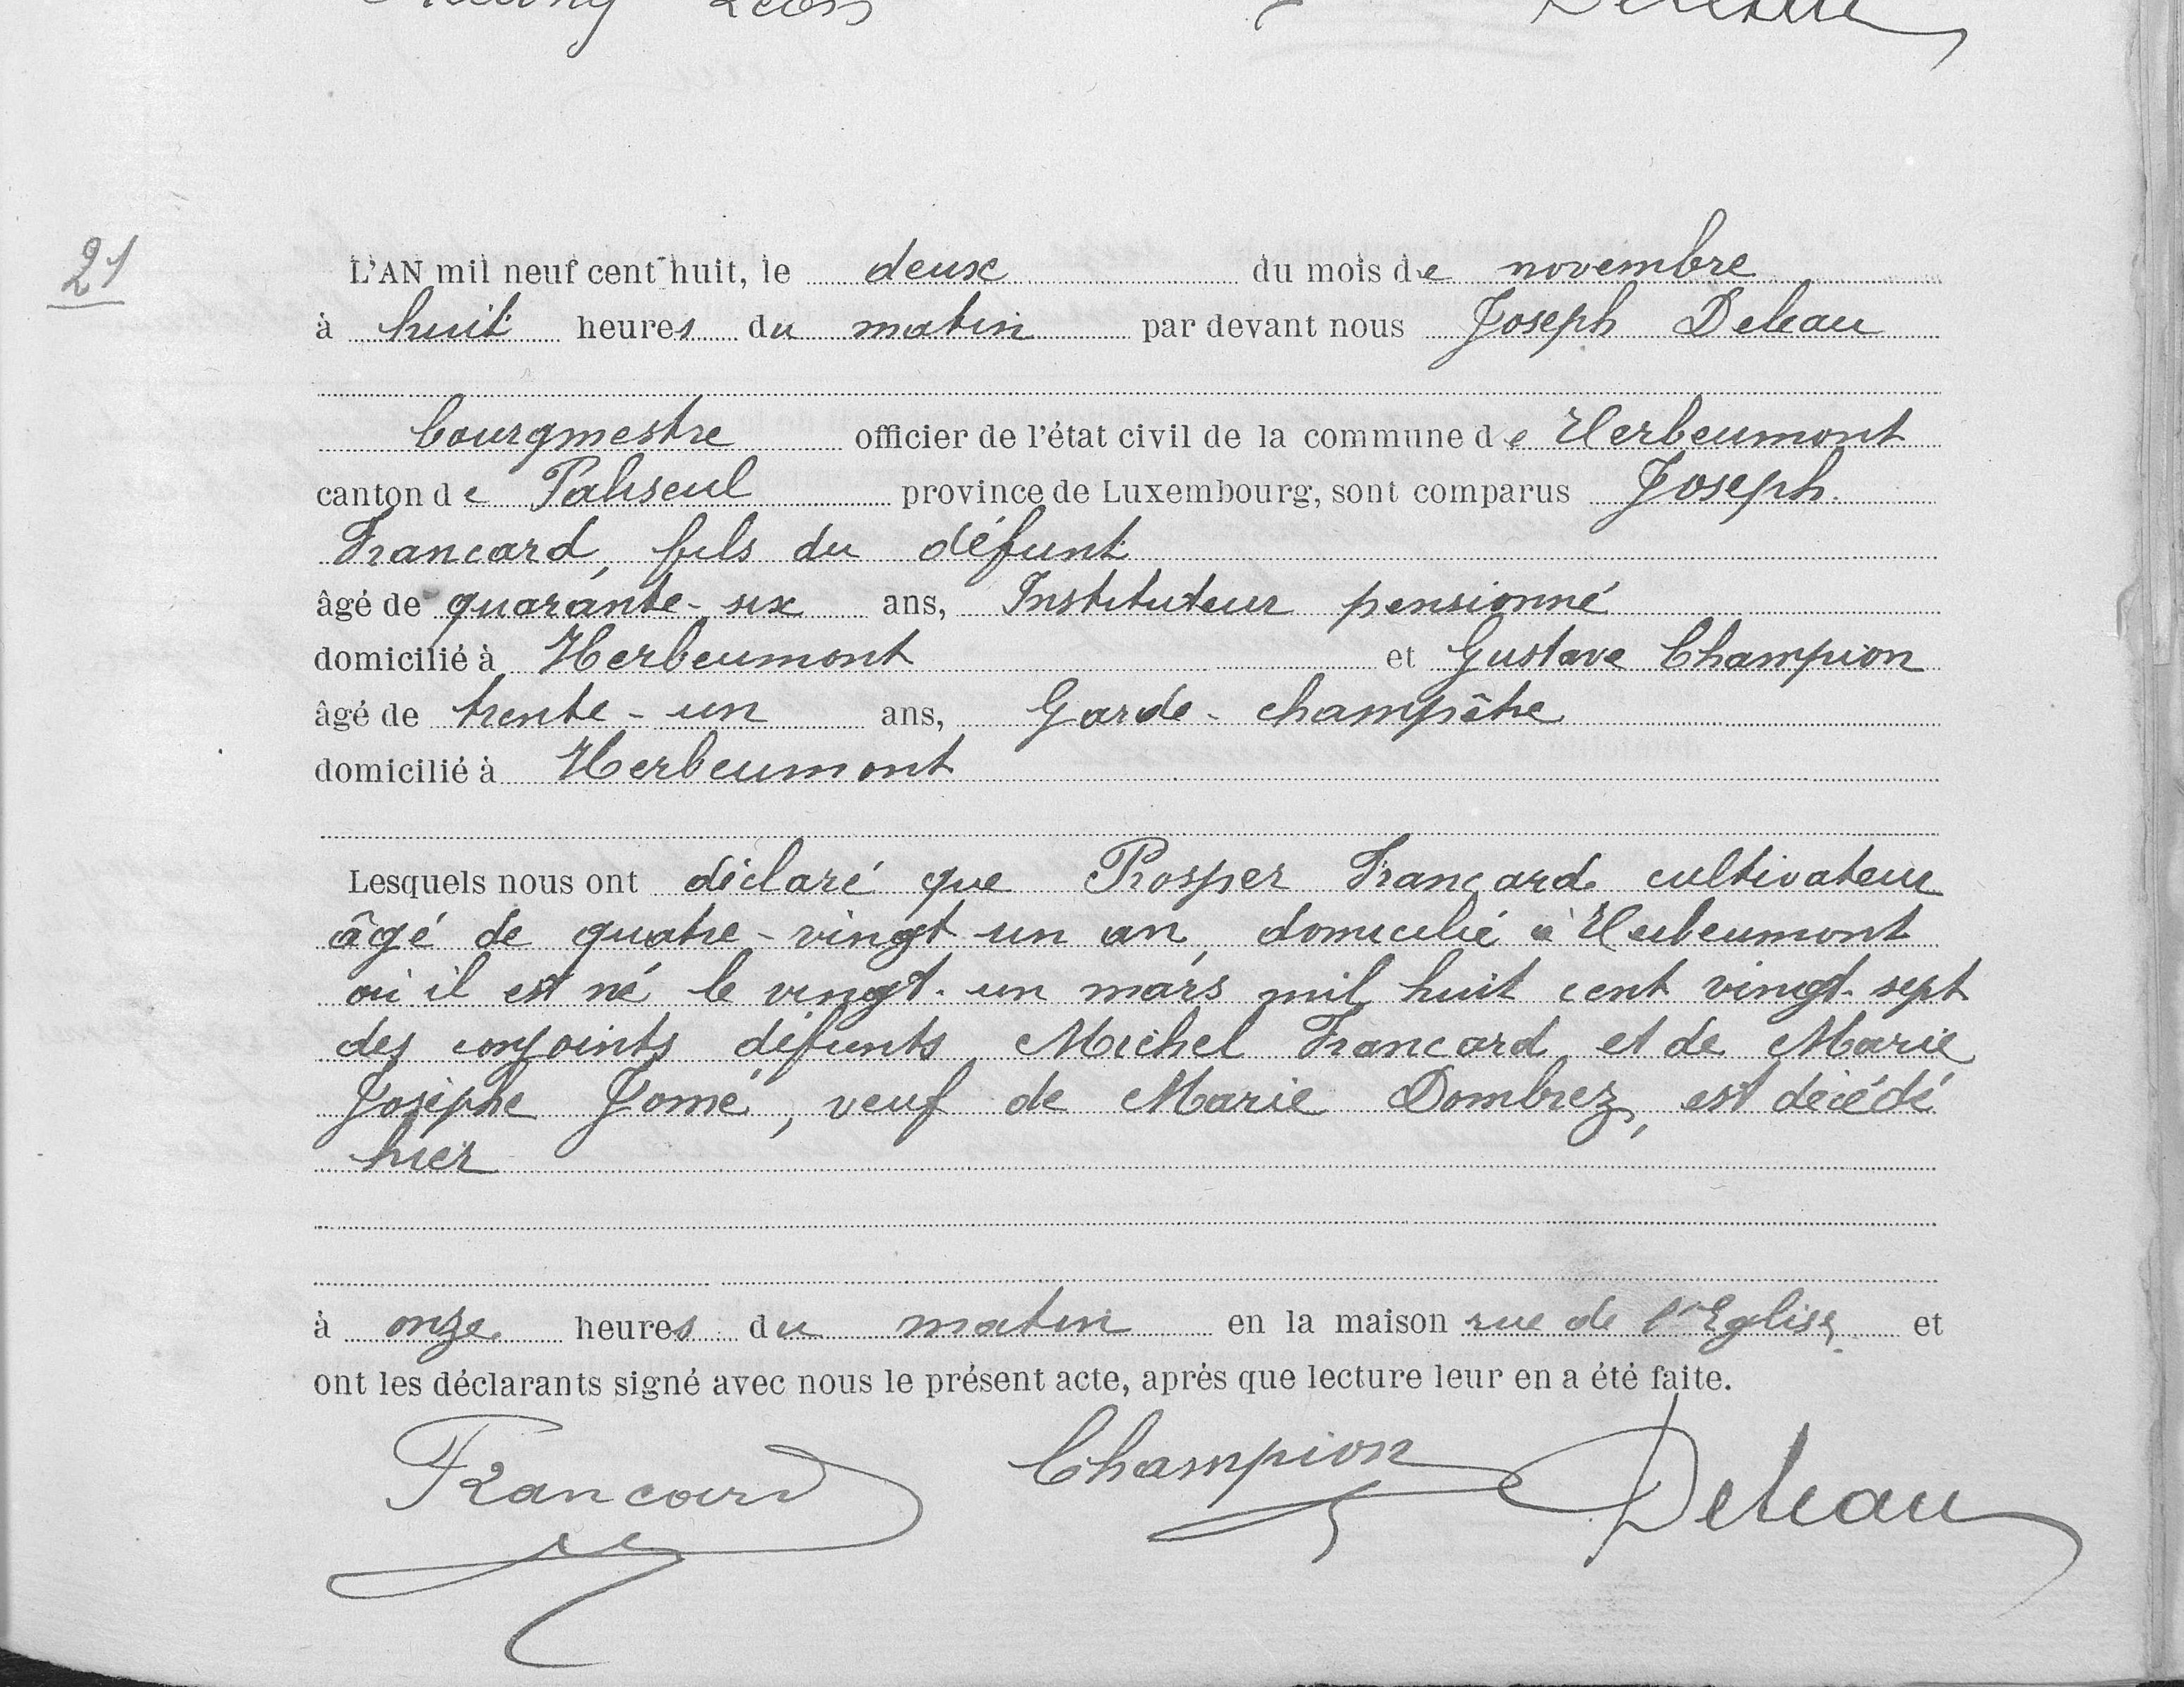 Léon
21
L'AN mil neuf cent huit, le deux du mois de novembre
à huit heures du matin par devant nous Joseph Deleau
bourgmestre officier de l'état civil de la commune de Herbeumont
canton de Paliseul province de Luxembourg, sont comparus Joseph
Francard, fils du défunt
âgé de quarante-six ans, Instituteur pensionné
domicilié à Herbeumont et Gustave Champion
âgé de trente-un ans, Garde-champêtre
domicilié à Herbeumont
Lesquels nous ont déclaré que Prosper Francard cultivateur
âgé de quatre-vingt un an, domicilié à Herbeumont
où il est né le vingt-un mars mil huit cent vingt-sept
des conjoints défunts Michel Francard et de Marie
Josèphe Jomé, veuf de Marie Dombrez, est décédé
hier
à onze heures du matin en la maison rue de l'Eglise et
ont les déclarants signé avec nous le présent acte, après que lecture leur en a été faite.
Francard Champion Deleau